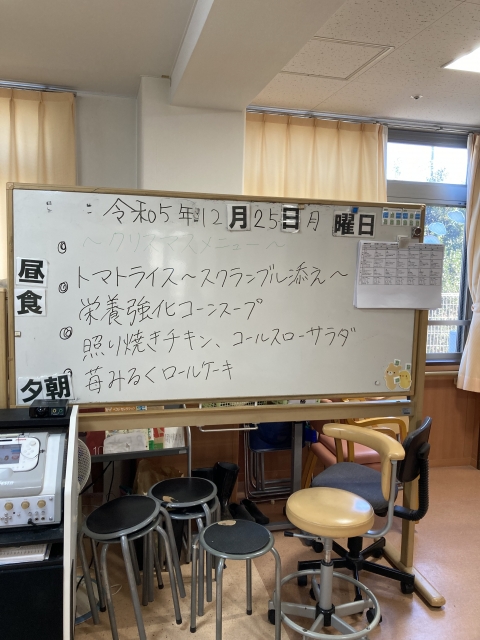 令和05年12月25日月曜日
～クリスマスメニュー～
昼食
トマトライス～スクランブル添え～
栄養強化コーンスープ
照り焼きチキン、コールスローサラダ
苺みるくロールケーキ
夕朝